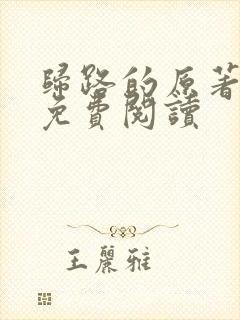 歸路的原著
免費閱讀
王麗雅